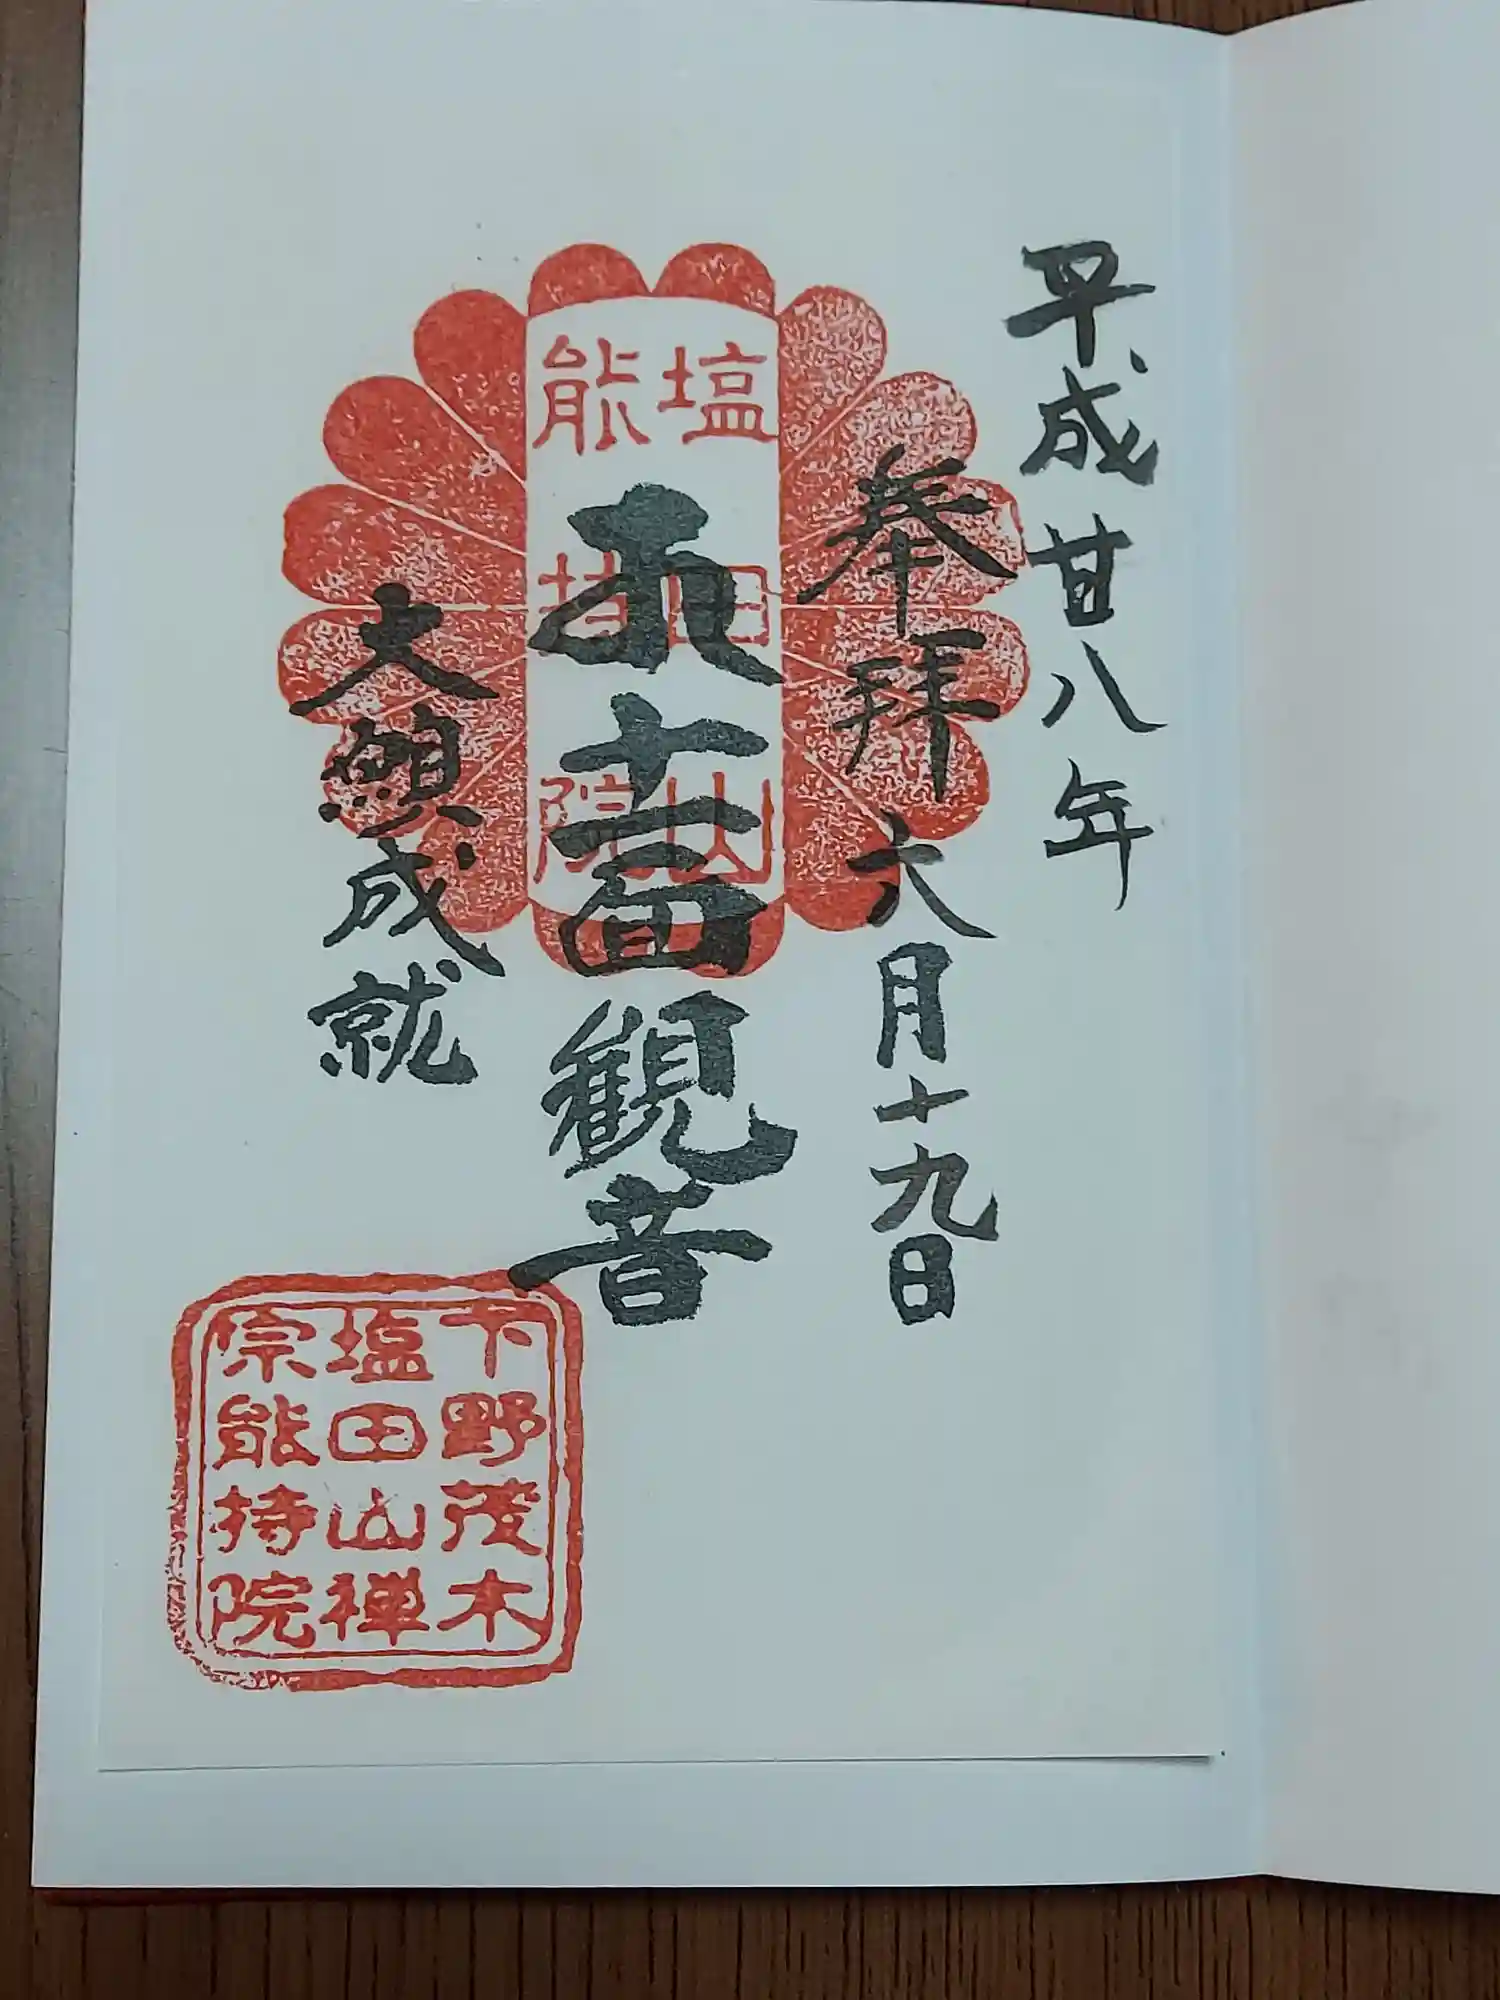 平成廿八年
奉拝
六月十九日
十一面観音
大願成就
塩田山
能持院
下野茂木
塩田山禅
宗能持院